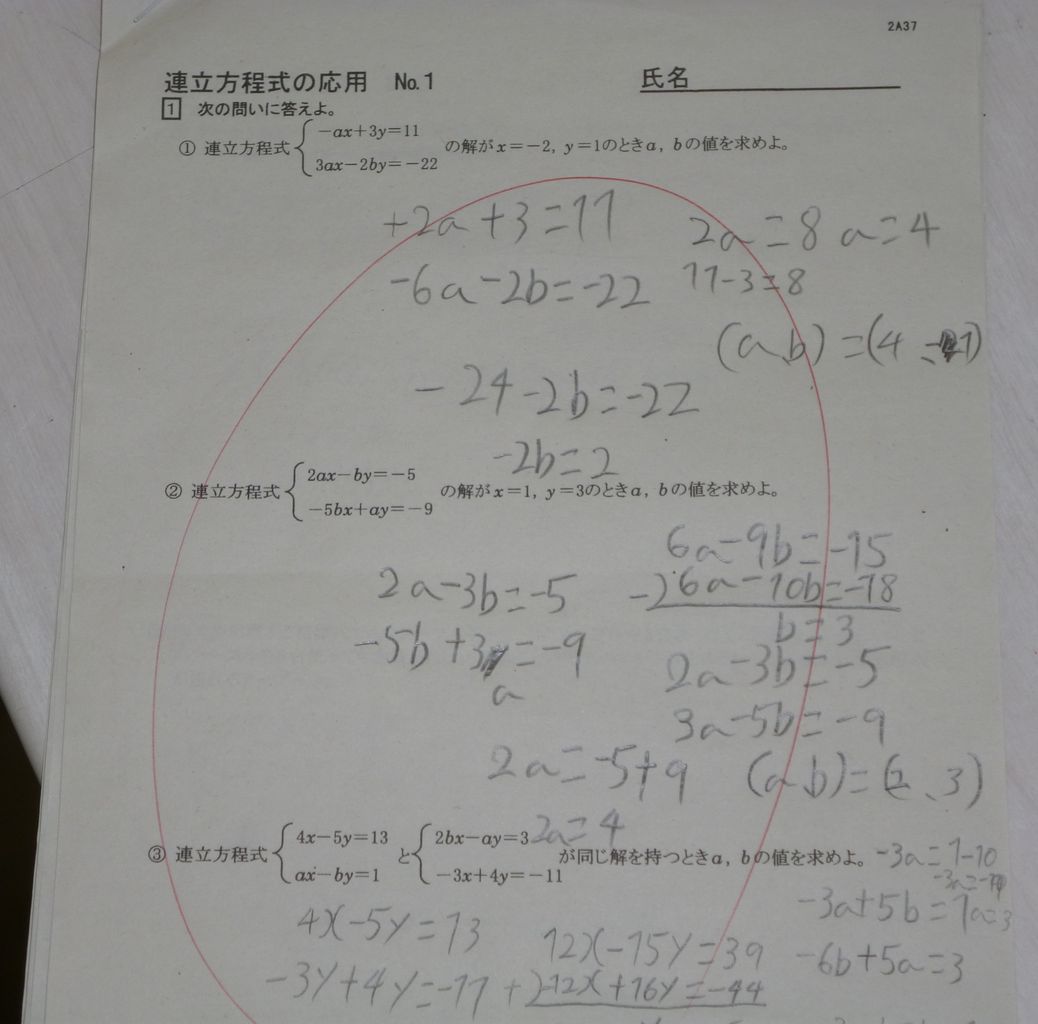 2A37
連立方程式の応用 No.1 氏名
1 次の問いに答えよ。
① 連立方程式 { -ax+3y=11 の解がx=-2, y=1のときa, bの値を求めよ。
3ax-2by=-22
+2a+3=11 2a=8 a=4
-6a-2b=-22 11-3=8
(a,b)=(4、-1)
-24-2b=-22
-2b=2
② 連立方程式 { 2ax-by=-5 の解がx=1, y=3のときa, bの値を求めよ。
-5bx+ay=-9
6a-9b=-15
2a-3b=-5 -) 6a-10b=-18
b=3
-5b+3a=-9
2a-3b=-5
3a-5b=-9
2a=-5+9 (a,b)=(2、3)
2a=4
③ 連立方程式 { 4x-5y=13 と { 2bx-ay=3 が同じ解を持つときa, bの値を求めよ。
ax-by=1 -3x+4y=-11
-3a=1-10
-3a+5b=1 a=3
4x-5y=13 12x-15y=39 -6b+5a=3
-3y+4y=-11 +) -12x+16y=-44